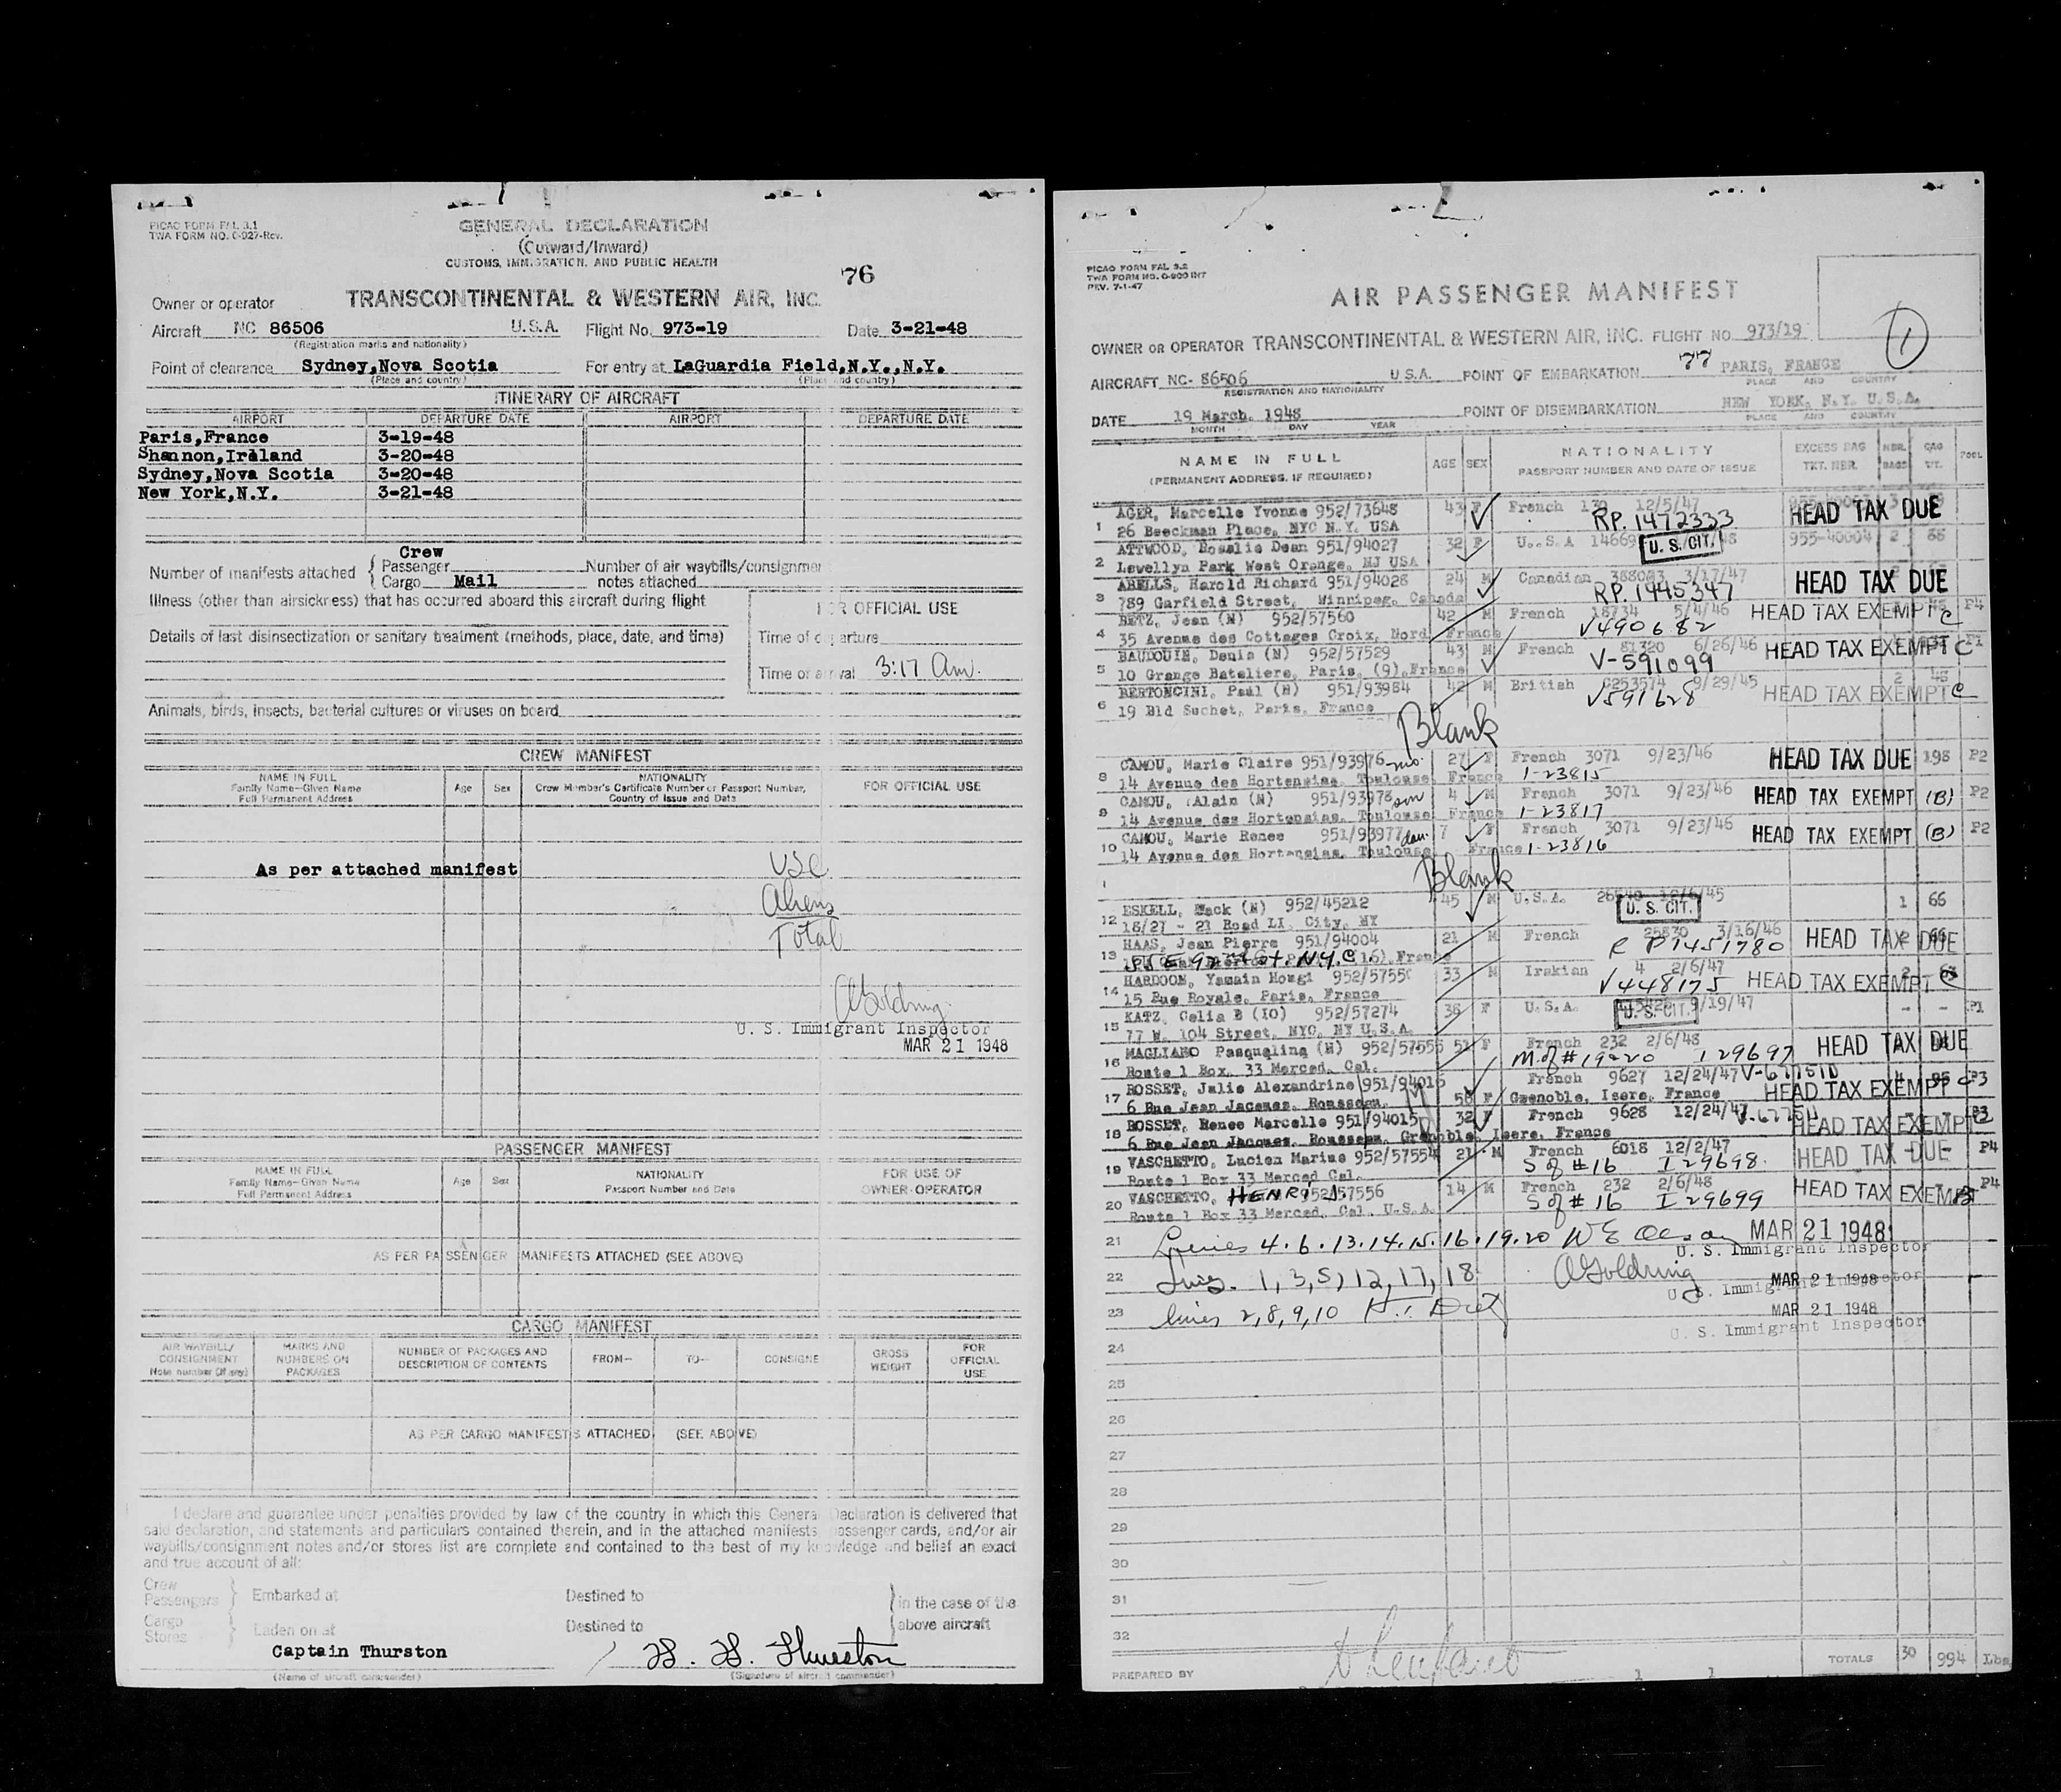 PICAO FORM FAL 3.1
TWA FORM NO. O-927-Rev.
GENERAL DECLARATION
(Outward/Inward)
CUSTOMS, IMMIGRATION, AND PUBLIC HEALTH
76
Owner or operator TRANSCONTINENTAL & WESTERN AIR, INC.
Aircraft NC 86506 U.S.A. Flight No. 973-19 Date 3-21-48
(Registration marks and nationality)
Point of clearance Sydney,Nova Scotia For entry at LaGuardia Field,N.Y.,N.Y.
(Place and country) (Place and country)
ITINERARY OF AIRCRAFT
AIRPORT DEPARTURE DATE AIRPORT DEPARTURE DATE
Paris,France 3-19-48
Shannon,Ireland 3-20-48
Sydney,Nova Scotia 3-20-48
New York,N.Y. 3-21-48
Crew
Number of manifests attached { Passenger Number of air waybills/consignment
Cargo Mail notes attached
Illness (other than airsickness) that has occurred aboard this aircraft during flight
FOR OFFICIAL USE
Details of last disinsectization or sanitary treatment (methods, place, date, and time)
Time of departure
Time of arrival 3:17 Am.
Animals, birds, insects, bacterial cultures or viruses on board
CREW MANIFEST
NAME IN FULL
Family Name-Given Name
Full Permanent Address
Age Sex
NATIONALITY
Crew Member's Certificate Number or Passport Number,
Country of Issue and Date
FOR OFFICIAL USE
As per attached manifest
USC
Aliens
Total
A Goldring
U. S. Immigrant Inspector
MAR 21 1948
PASSENGER MANIFEST
NAME IN FULL
Family Name-Given Name
Full Permanent Address
Age Sex
NATIONALITY
Passport Number and Date
FOR USE OF
OWNER-OPERATOR
AS PER PASSENGER MANIFESTS ATTACHED (SEE ABOVE)
CARGO MANIFEST
AIR WAYBILL/
CONSIGNMENT
Note number (if any)
MARKS AND
NUMBERS ON
PACKAGES
NUMBER OF PACKAGES AND
DESCRIPTION OF CONTENTS
FROM- TO- CONSIGNE
GROSS
WEIGHT
FOR
OFFICIAL
USE
AS PER CARGO MANIFESTS ATTACHED (SEE ABOVE)
I declare and guarantee under penalties provided by law of the country in which this General Declaration is delivered that
said declaration, and statements and particulars contained therein, and in the attached manifests passenger cards, and/or air
waybills/consignment notes and/or stores list are complete and contained to the best of my knowledge and belief an exact
and true account of all:
Crew
Passengers } Embarked at Destined to
Cargo
Stores } Laden on at Destined to
} in the case of the
above aircraft
Captain Thurston
(Name of aircraft commander) (Signature of aircraft commander)
PICAO FORM FAL 3.2
TWA FORM NO. O-900 INT
REV. 7-1-47
AIR PASSENGER MANIFEST
1
OWNER OR OPERATOR TRANSCONTINENTAL & WESTERN AIR, INC. FLIGHT NO. 973/19
AIRCRAFT NC- 86506 U.S.A. POINT OF EMBARKATION 77 PARIS, FRANCE
REGISTRATION AND NATIONALITY PLACE AND COUNTRY
DATE 19 March. 1948 POINT OF DISEMBARKATION NEW YORK, N.Y. U.S.A.
MONTH DAY YEAR PLACE AND COUNTRY
NAME IN FULL
(PERMANENT ADDRESS, IF REQUIRED)
AGE SEX
NATIONALITY
PASSPORT NUMBER AND DATE OF ISSUE
EXCESS BAG
TKT. NBR.
NBR.
BAGS
BAG
WT.
POOL
1 AGER, Marcelle Yvonne 952/73648 43 F French 12/5/47 HEAD TAX DUE
26 Beeckman Place, NYC N.Y. USA RP. 1472333
2 ATTWOOD, Rosalie Dean 951/94027 32 F U.S.A 14669 U. S. CIT. 955-40004 2 66
Lewellyn Park West Orange, NJ USA
3 ABELLS, Harold Richard 951/94028 24 M Canadian 3/17/47 HEAD TAX DUE
789 Garfield Street, Winnipeg, Canada RP. 1445347
4 BETZ, Jean (N) 952/57560 42 M French 18734 5/4/46 HEAD TAX EXEMPT C P4
35 Avenue des Cottages Croix, Nord France V490682
5 BAUDOUIN, Denis (N) 952/57529 43 M French 81320 6/26/46 HEAD TAX EXEMPT C P1
10 Grange Bateliere, Paris, (9),France V-591099
6 BERTONCINI, Paul (N) 951/93984 42 M British C253574 9/29/45 HEAD TAX EXEMPT C
19 Bld Suchet, Paris, France V591628
Blank
8 CAMOU, Marie Claire 951/93976 mo. 27 F French 3071 9/23/46 HEAD TAX DUE 198 P2
14 Avenue des Hortensias, Toulouse France 1-23815
9 CAMOU, Alain (N) 951/93978 son 4 M French 3071 9/23/46 HEAD TAX EXEMPT (B) P2
14 Avenue des Hortensias, Toulouse France 1-23817
10 CAMOU, Marie Renee 951/93977 dau. 7 F French 3071 9/23/46 HEAD TAX EXEMPT (B) P2
14 Avenue des Hortensias, Toulouse France 1-23816
Blank
12 ESKELL, Mack (N) 952/45212 45 M U.S.A. 12/6/45 U. S. CIT. 1 66
18/27 - 21 Road LI. City, NY
13 HAAS, Jean Pierre 951/94004 21 M French 25830 3/16/46 HEAD TAX DUE
E 92 St. N.Y.C. R P1451780
14 HARDOON, Yamain Hougi 952/5755 33 M Irakian 4 2/6/47 HEAD TAX EXEMPT C
15 Rue Royale, Paris, France V448175
15 KATZ, Celia B (IO) 952/57274 36 F U.S.A. 9/19/47 U. S. CIT. - - P1
77 W. 104 Street, NYC, NY U.S.A.
16 MAGLIANO Pasqualina (N) 952/57555 51 F French 232 2/6/48 HEAD TAX DUE
Route 1 Box. 33 Merced, Cal. M. of # 19-20 I 29697
17 ROSSET, Julie Alexandrine 951/94016 58 F French 9627 12/24/47 HEAD TAX EXEMPT C P3
6 Rue Jean Jacques, Rousseau, Grenoble, Isere, France
18 ROSSET, Renee Marcelle 951/94015 32 F French 9628 12/24/47 HEAD TAX EXEMPT C P3
6 Rue Jean Jacques, Rousseau, Grenoble, Isere, France
19 VASCHETTO, Lucien Marius 952/57554 21 M French 6018 12/2/47 HEAD TAX DUE P4
Route 1 Box 33 Merced Cal. S of #16 I 29698
20 VASCHETTO, HENRI 952/57556 14 M French 232 2/6/48 HEAD TAX EXEMPT B P4
Route 1 Box 33 Merced, Cal. U.S.A. S of #16 I 29699
21 4.6.13.14.15.16.19.20 MAR 21 1948
U. S. Immigrant Inspector
22 Lines. 1, 3, 5, 12, 17, 18 A Goldring MAR 21 1948
U. S. Immigrant Inspector
23 lines 2, 8, 9, 10 MAR 21 1948
U. S. Immigrant Inspector
24
25
26
27
28
29
30
31
32
PREPARED BY TOTALS 30 994 Lbs